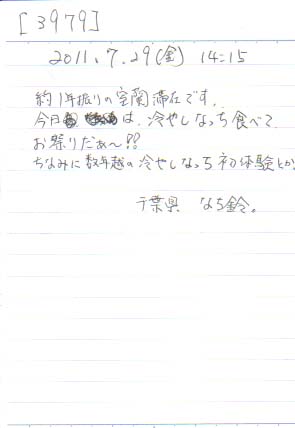 [3979]
2011.7.29(金) 14:15
約1年振りの室蘭滞在です。
今日は、冷やしなっち食べて
お祭りだぁ〜!!
ちなみに数年越の冷やしなっち初体験とか。
千葉県 なち鈴。